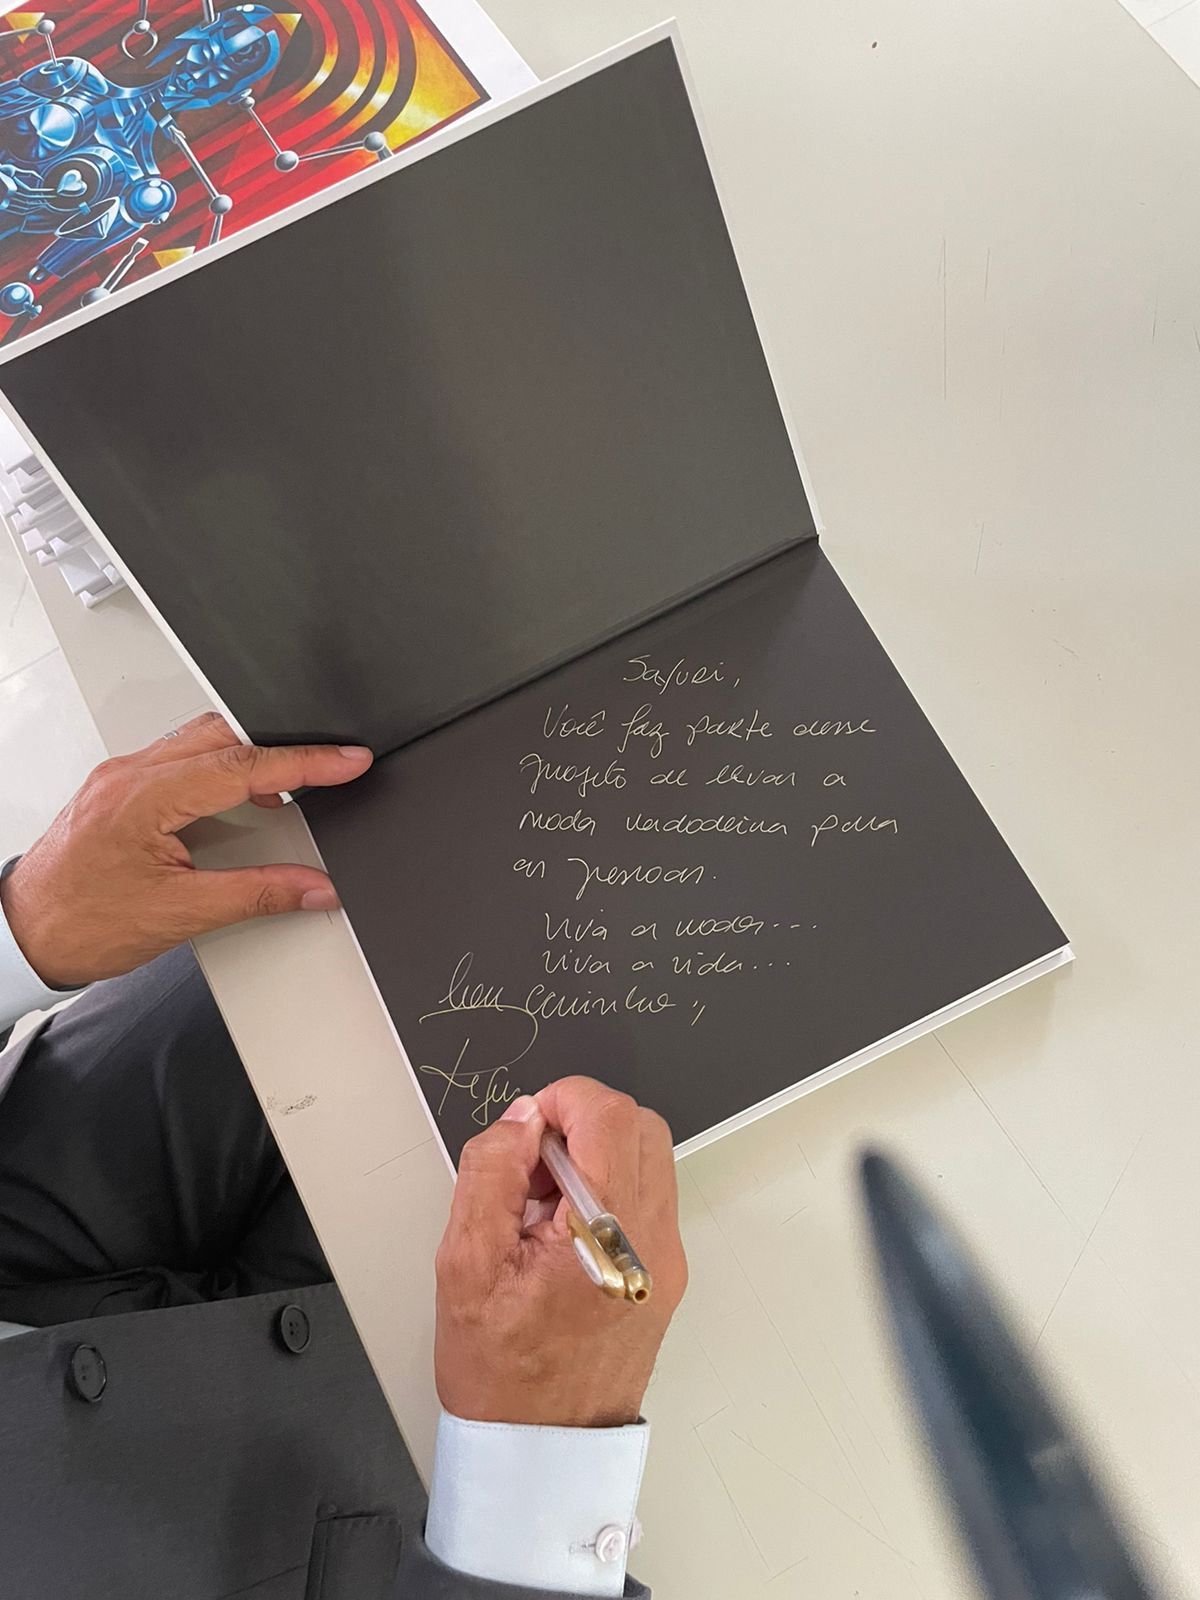 Sayuri,
Você faz parte desse
projeto de levar a
moda verdadeira para
as pessoas.
Viva a moda...
Viva a vida...
Com Carinho,